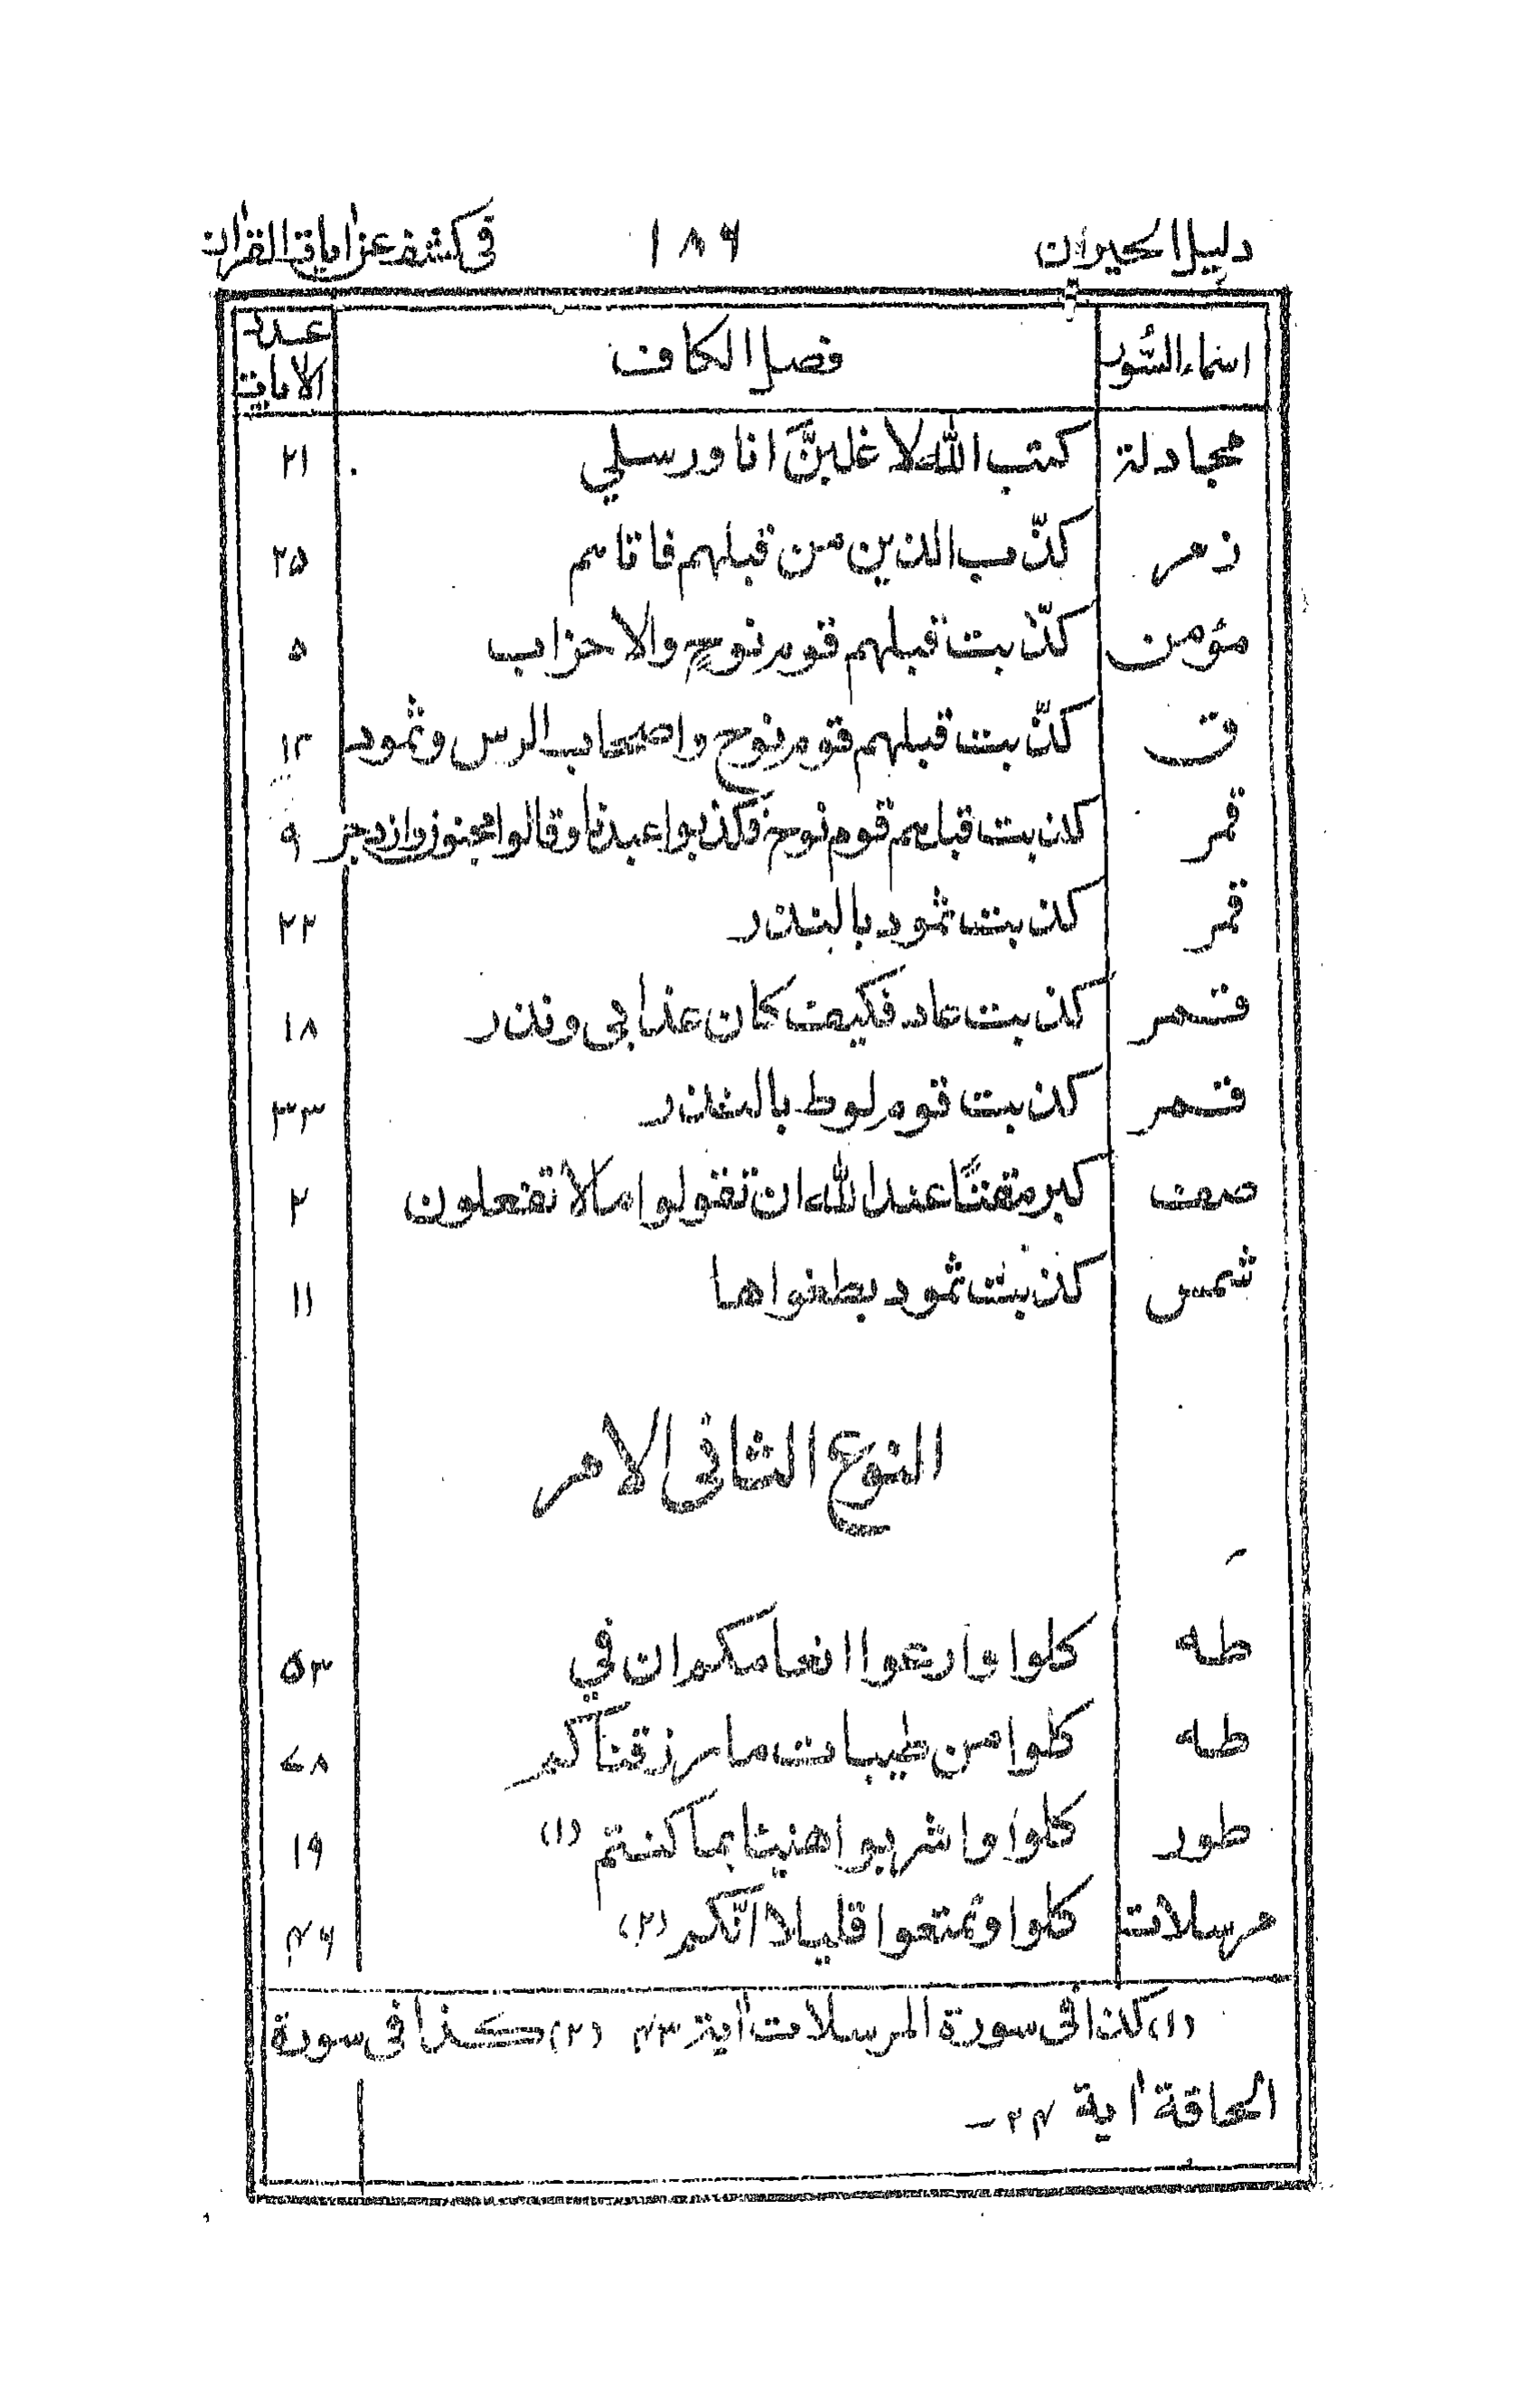 دليل الحيران ١٨٦ فى كشف عن اٰيات القراٰن
اسماء السُّور فصل الكاف عدد الاٰيات
مجادلة كتب الله لا غلبنَّ انا ورسلي ٢١
زمر كذّب الذين من قبلهم فاتاهم ٢٥
مؤمن كذّبت قبلهم قوم نوحٍ والاحزاب ٥
ق كذّبت قبلهم قوم نوح واصحاب الرس وثمود ١٢
قمر كذبت قبلهم قوم نوح فكذبوا عبدنا وقالوا مجنون وازدجر ٩
قمر كذبت ثمود بالنذر ٢٣
قمر كذبت عاد فكيف كان عذابي ونذر ١٨
قمر كذبت قوم لوط بالنذر ٣٣
صف كبر مقتًا عند الله ان تقولوا ما لا تفعلون ٢
شمس كذبت ثمود بطغواها ١١
النوع الثانى الامر
طه كلوا وارعوا انعامكم ان في ٥٣
طه كلوا من طيبات ما رزقناكم ٧٨
طور كلوا واشربوا هنيئا بما كنتم (١) ١٩
مرسلات كلوا وتمتعوا قليلا انّكم (٢) ٤٦
(١) كذا فى سورة المرسلات اٰية ٤٣ (٢) كذا فى سورة
الحاقة اٰية ٢٤ -